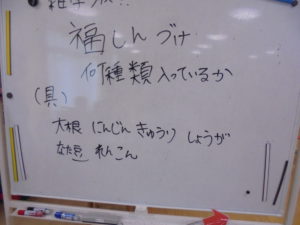 雑学クイズ!!
福しんづけ
何種類入っているか
(具)
大根 にんじん きゅうり しょうが
なた豆 れんこん